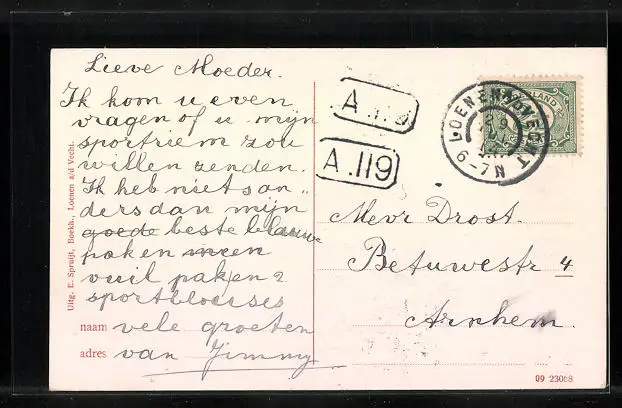 Lieve Moeder.
Ik kom u even
vragen of u mijn
sportriem zou
willen zenden.
Ik heb niet an„
ders dan mijn
goede beste blauwe
paken en een
vuil paken 2
sportbloeses
naam vele groeten
adres van Jimmy
Uitg. E. Spruijt, Boekh., Loenen a/d Vecht.
A.119
A.119
LOENEN A/D VECHT
6-7N
Mevr Drost.
Betuwestr 4
Arnhem.
09 23068